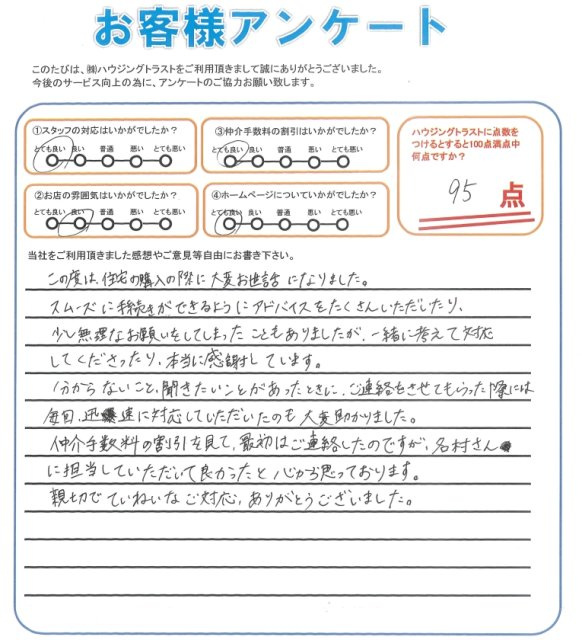 お客様アンケート
このたびは、㈱ハウジングトラストをご利用頂きまして誠にありがとうございました。
今後のサービス向上の為に、アンケートのご協力お願い致します。
①スタッフの対応はいかがでしたか？
とても良い 良い 普通 悪い とても悪い
②お店の雰囲気はいかがでしたか？
とても良い 良い 普通 悪い とても悪い
③仲介手数料の割引はいかがでしたか？
とても良い 良い 普通 悪い とても悪い
④ホームページについていかがでしたか？
とても良い 良い 普通 悪い とても悪い
ハウジングトラストに点数を
つけるとすると100点満点中
何点ですか？
95 点
当社をご利用頂きました感想やご意見等自由にお書き下さい。
この度は、住宅の購入の際に大変お世話になりました。
スムーズに手続きができるようにアドバイスをたくさんいただいたり、
少し無理なお願いをしてしまったこともありましたが、一緒に考えて対応
してくださったり、本当に感謝しています。
分からないこと、聞きたいことがあったときに、ご連絡をさせてもらった際には
毎回、迅速に対応していただいたのも大変助かりました。
仲介手数料の割引を見て、最初はご連絡したのですが、名村さん
に担当していただいて良かったと心から思っております。
親切でていねいなご対応、ありがとうございました。